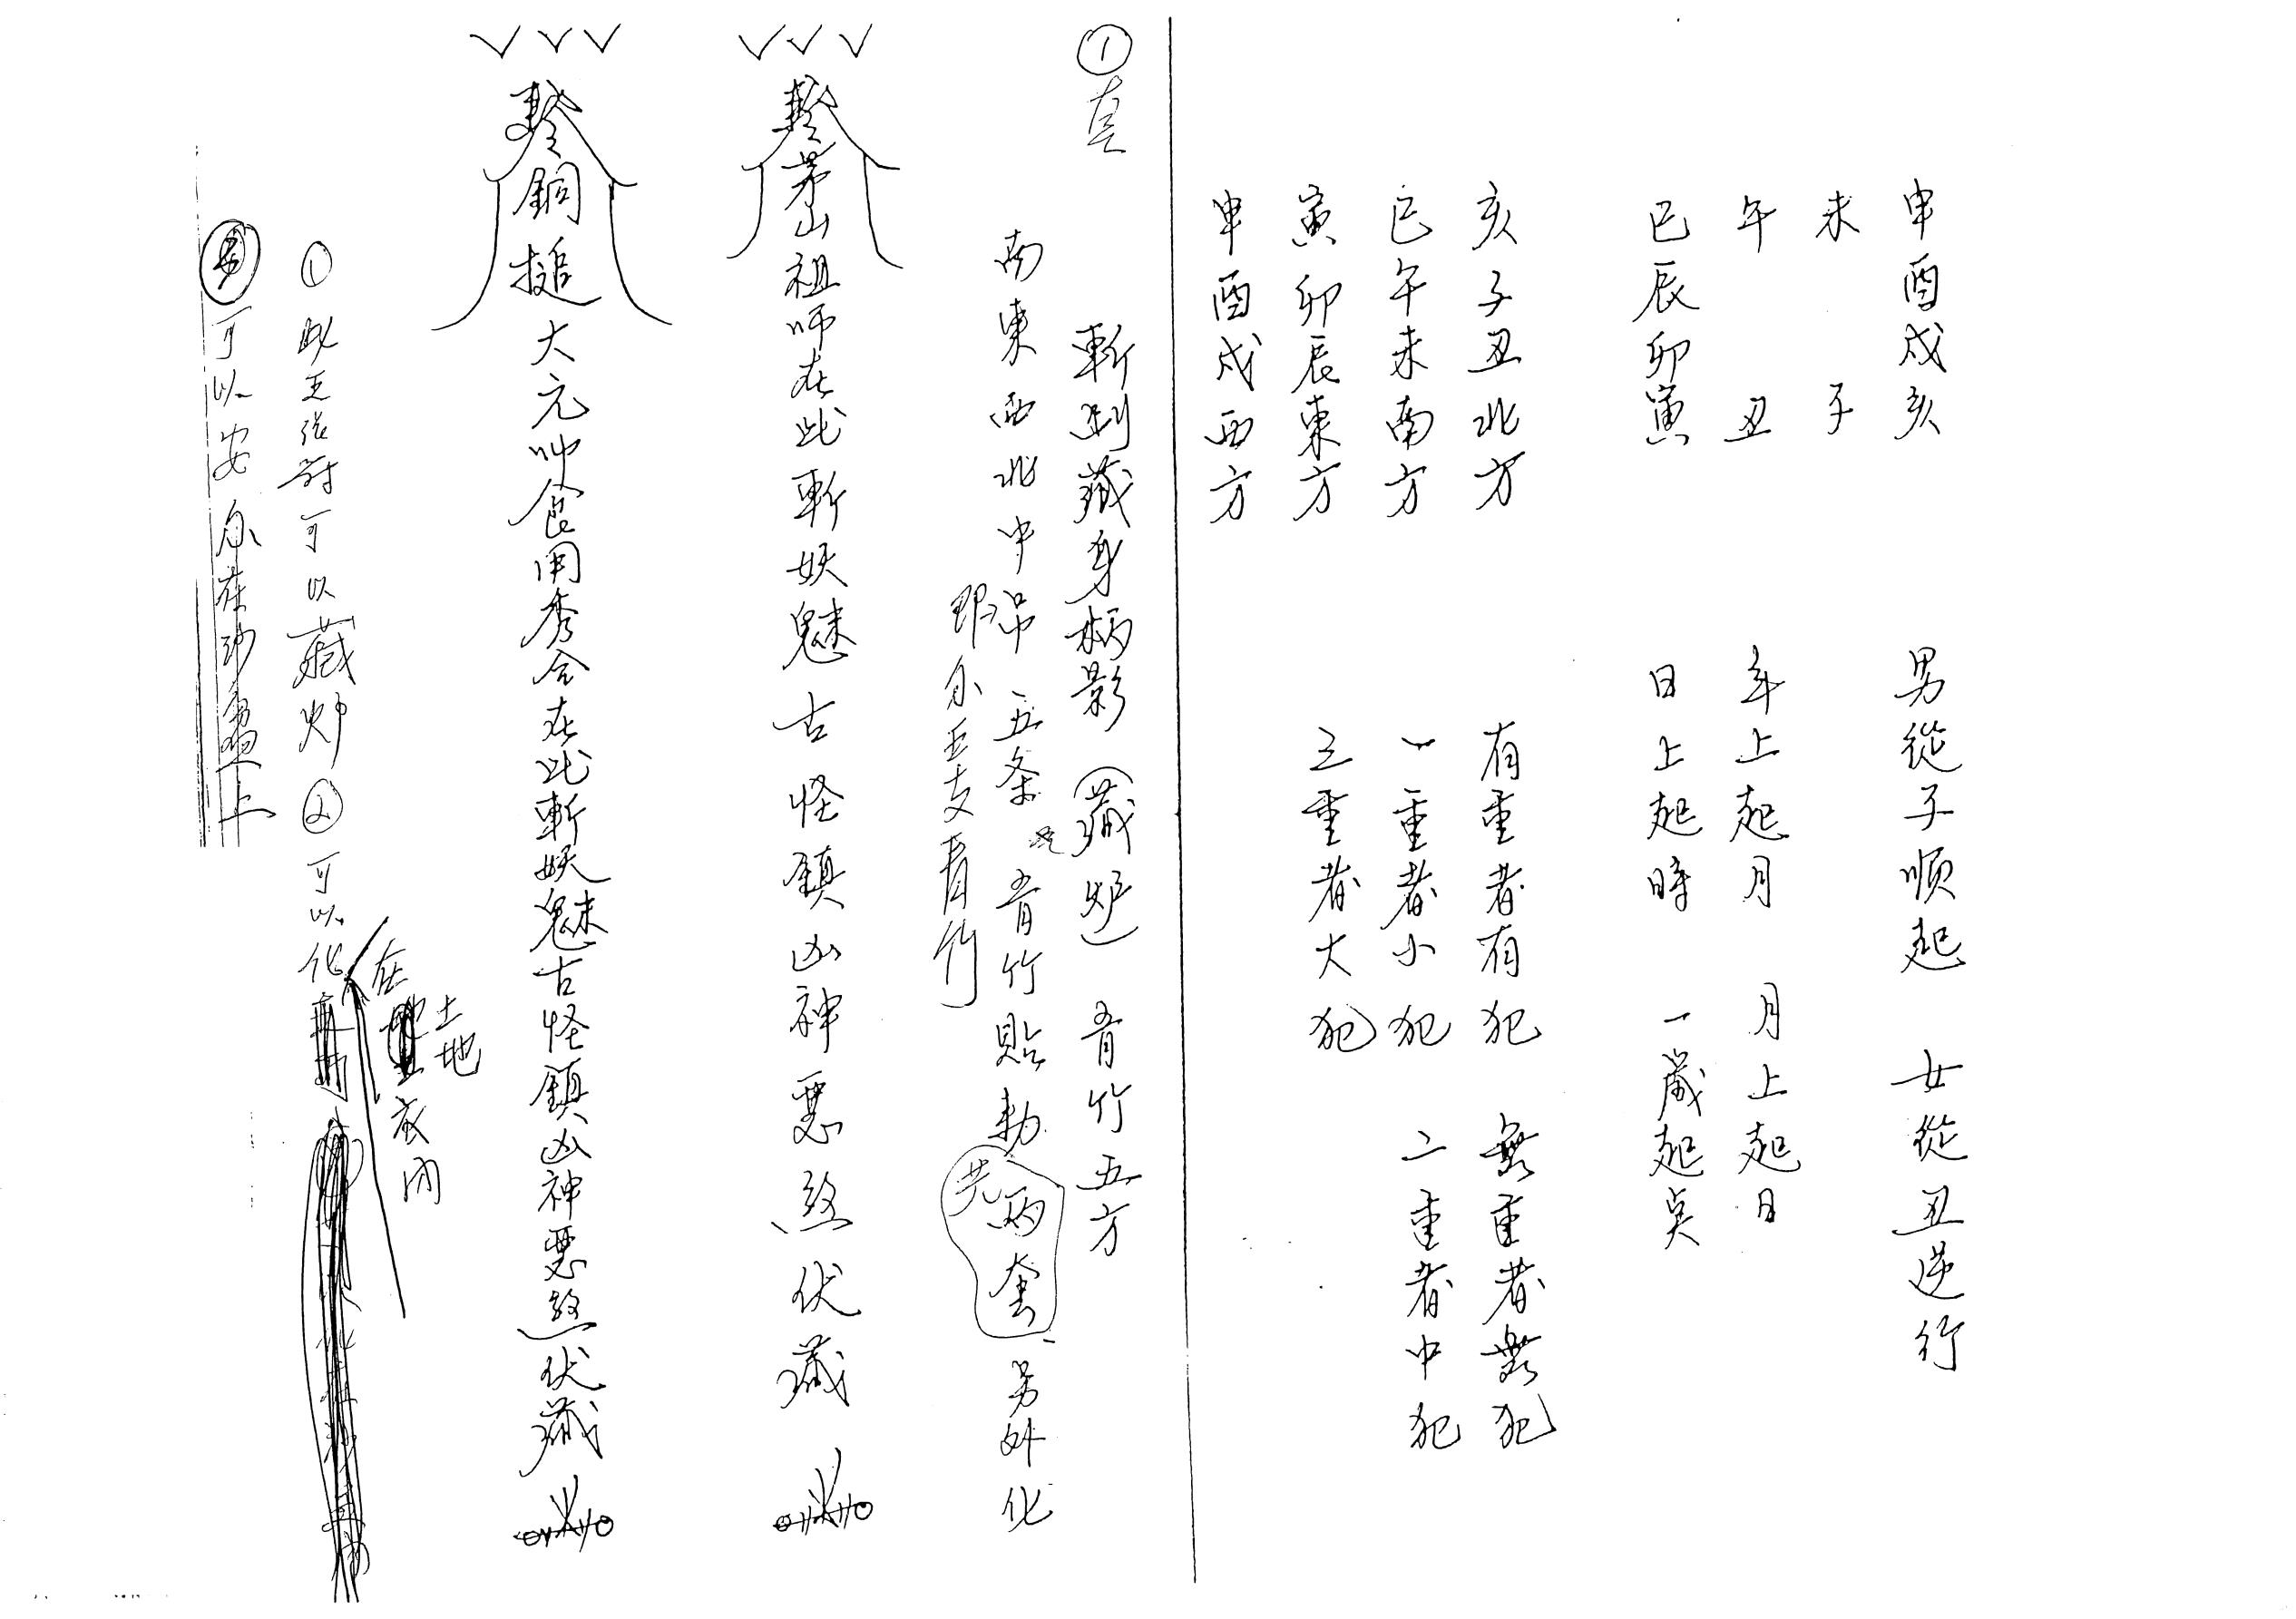 申酉戌亥
未　子
午　丑
巳辰卯寅
男從子順起　女從丑逆行
年上起月　月上起日
日上起時　一歲起吳
亥子丑北方
巳午未南方
寅卯辰東方
申酉戌西方
有重者有犯　無重者無犯
一重者小犯　二重者中犯
三重者大犯
① 真
斬剎藏身柄影（藏炉）青竹五方
南東西北中 吊五条 青竹貼勅 共兩套 另外化
即 五支青竹
茅山祖师在此斬妖魅古怪鎮凶神惡煞伏藏
銅搥大元帅食用秀合在此斬妖魅古怪鎮凶神惡煞伏藏
① 此 张符可以藏炉 ② 可以化
在土地衣內
可以安 在 上